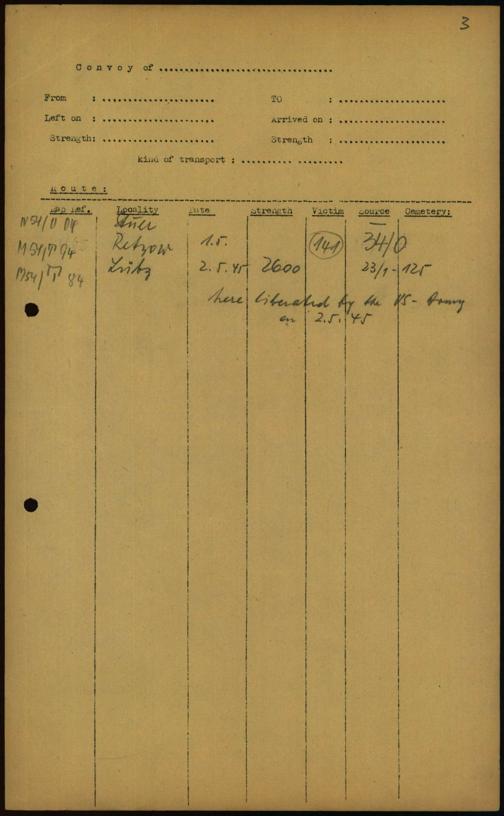 3
Convoy of ..................................
From : ...................... TO : ......................
Left on : ...................... Arrived on : ......................
Strength: ...................... Strength : ......................
kind of transport : .......... ..........
Route:
Map Ref. Locality Date Strength Victim Source Cemetery:
Retzow 1.5. 141 34/0
M54/ 84 Lübz 2.5.45 2600 23/1-125
here liberated by the US-Army
on 2.5.45